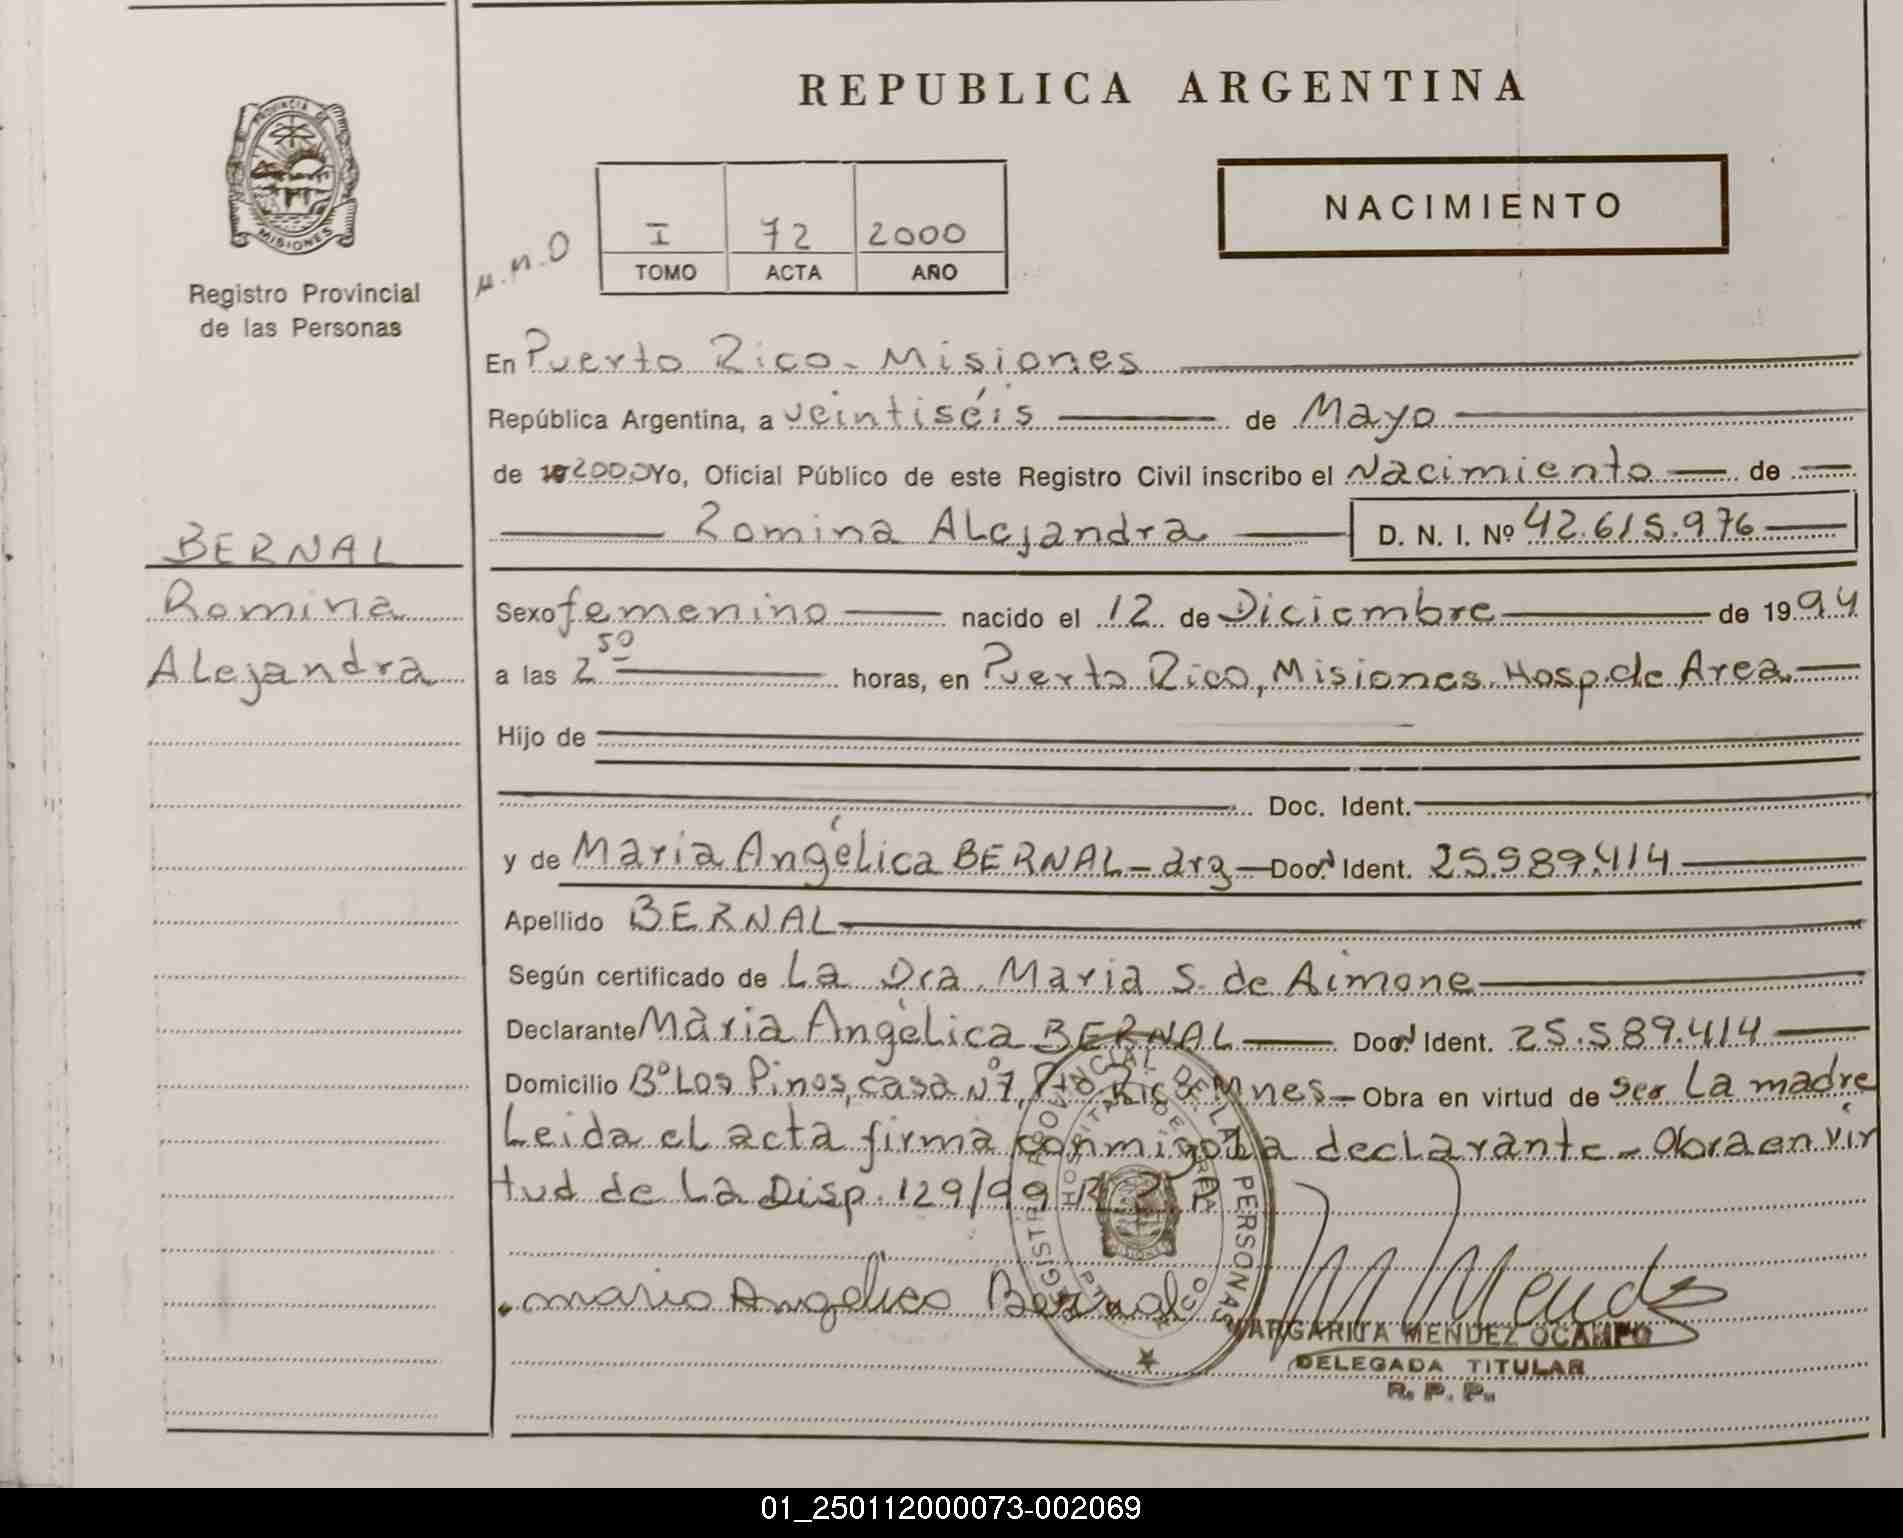 REPUBLICA ARGENTINA
PROVINCIA DE
MISIONES
Registro Provincial
de las Personas
NACIMIENTO
M.N.O
I 72 2000
TOMO ACTA AÑO
En Puerto Rico - Misiones
República Argentina, a veintiséis de Mayo
de 19 2000 Yo, Oficial Público de este Registro Civil inscribo el Nacimiento de
Romina ALejandra D. N. I. Nº 42.615.976
BERNAL
Romina
ALejandra
Sexo femenino nacido el 12 de Diciembre de 1994
a las 2 50 horas, en Puerto Rico, Misiones. Hosp. de Area
Hijo de
Doc. Ident.
y de Maria Angélica BERNAL - arg - Doc. Ident. 25.989.414
Apellido BERNAL
Según certificado de La Dra. Maria S. de Aimone
Declarante Maria Angélica BERNAL Doc. Ident. 25.589.414
Domicilio Bº Los Pinos, casa Nº 7, Pto Rico Mnes - Obra en virtud de ser La madre
Leida el acta firma conmigo La declarante - Obra en vir
tud de La Disp. 129/99 R.P.P.
REGISTRO PROVINCIAL DE LAS PERSONAS
HOSPITAL DE AREA
PTO. RICO
maria Angelica Bernal
M Mendez
MARGARITA MENDEZ OCAMPO
DELEGADA TITULAR
R. P. P.
01_250112000073-002069